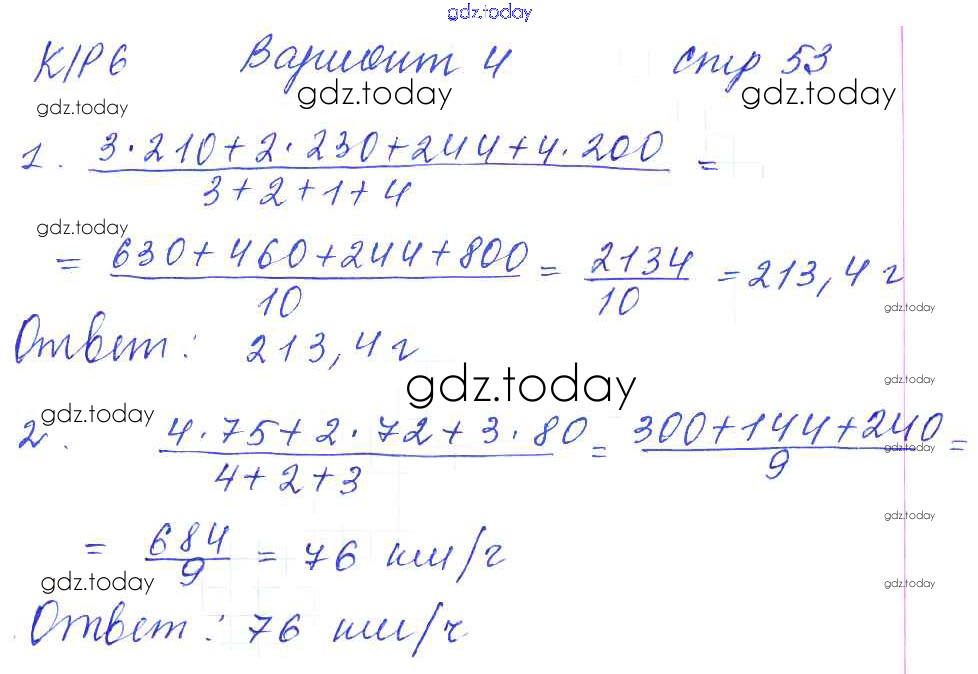 gdz.today
К/Р 6 Вариант 4 стр 53
gdz.today gdz.today gdz.today
1. 3·210+2·230+244+4·200 =
3+2+1+4
gdz.today
= 630+460+244+800 = 2134 = 213,4 г
10 10
gdz.today
Ответ: 213,4 г
gdz.today gdz.today
gdz.today
2. 4·75+2·72+3·80 = 300+144+240 =
4+2+3 9
gdz.today
gdz.today
= 684 = 76 км/г
9
gdz.today gdz.today
Ответ: 76 км/ч